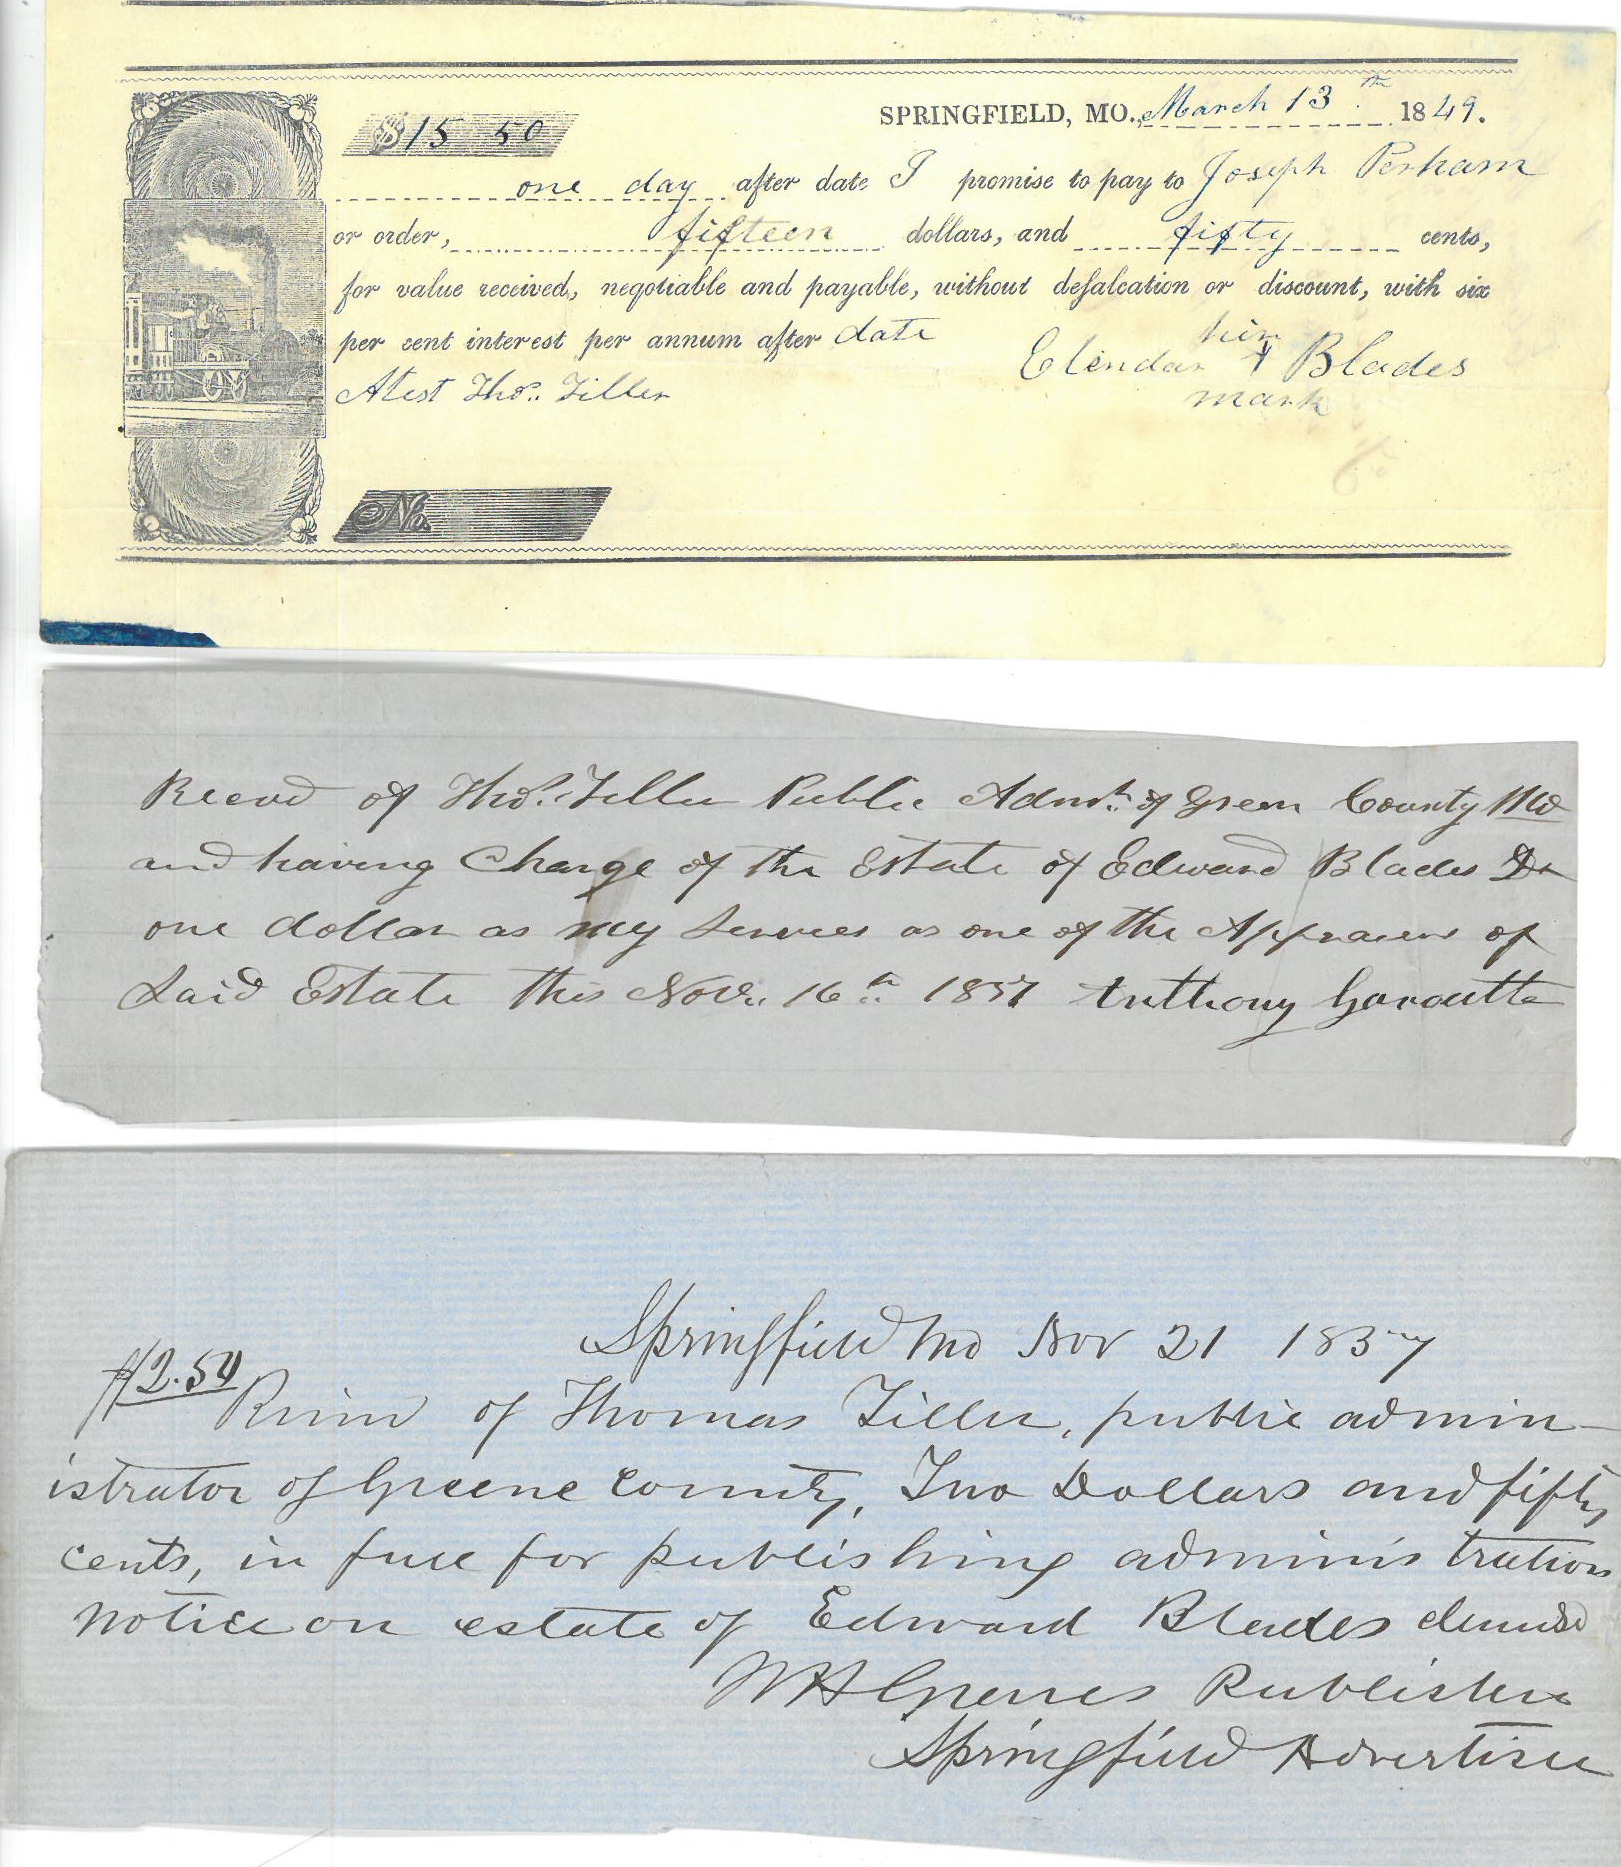 SPRINGFIELD, MO., March 13th 1849.
$15 50
one day after date I promise to pay to Joseph Perham
or order, fifteen dollars, and fifty cents,
for value received, negotiable and payable, without defalcation or discount, with six
per cent interest per annum after date
his
Elendar + Blades
mark
Atest Thos. Tiller
No.
Recevd of Thos. Tiller Public Admr. of Green County Mo
and having Charge of the Estate of Edward Blades
one dollar as my Services as one of the Appraisers of
Said Estate this Nov. 16th 1857 Anthony Garoutte
Springfield Mo Nov 21 1857
$2.50
of Thomas Tiller, public admin-
istrator of Greene County, Two Dollars and fifty
cents, in full for publishing administration
notice on estate of Edward Blades deceased
W H Graves Publisher
Springfield Advertiser